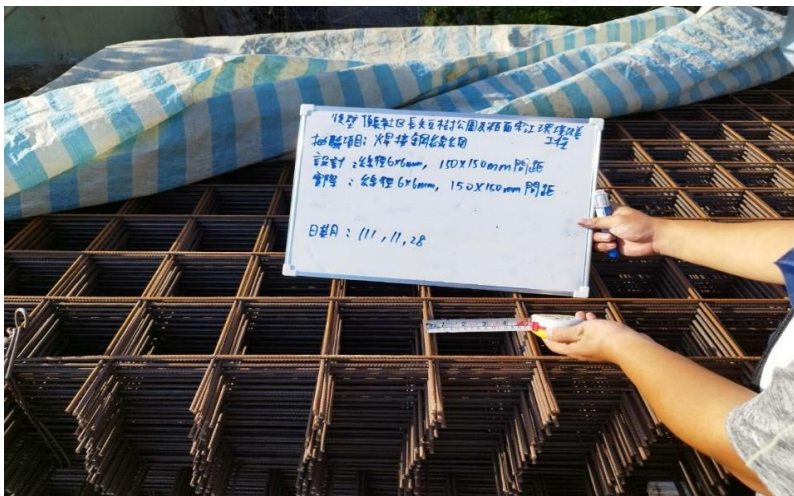 後壁頂長社區長夾豆樹公園及牆面穿江環境改善
工程
抽驗項目：焊接鋼線網
設計：線徑6x6mm, 150x150mm間距
實際：線徑6x6mm, 150x150mm間距
日期：111,11,28